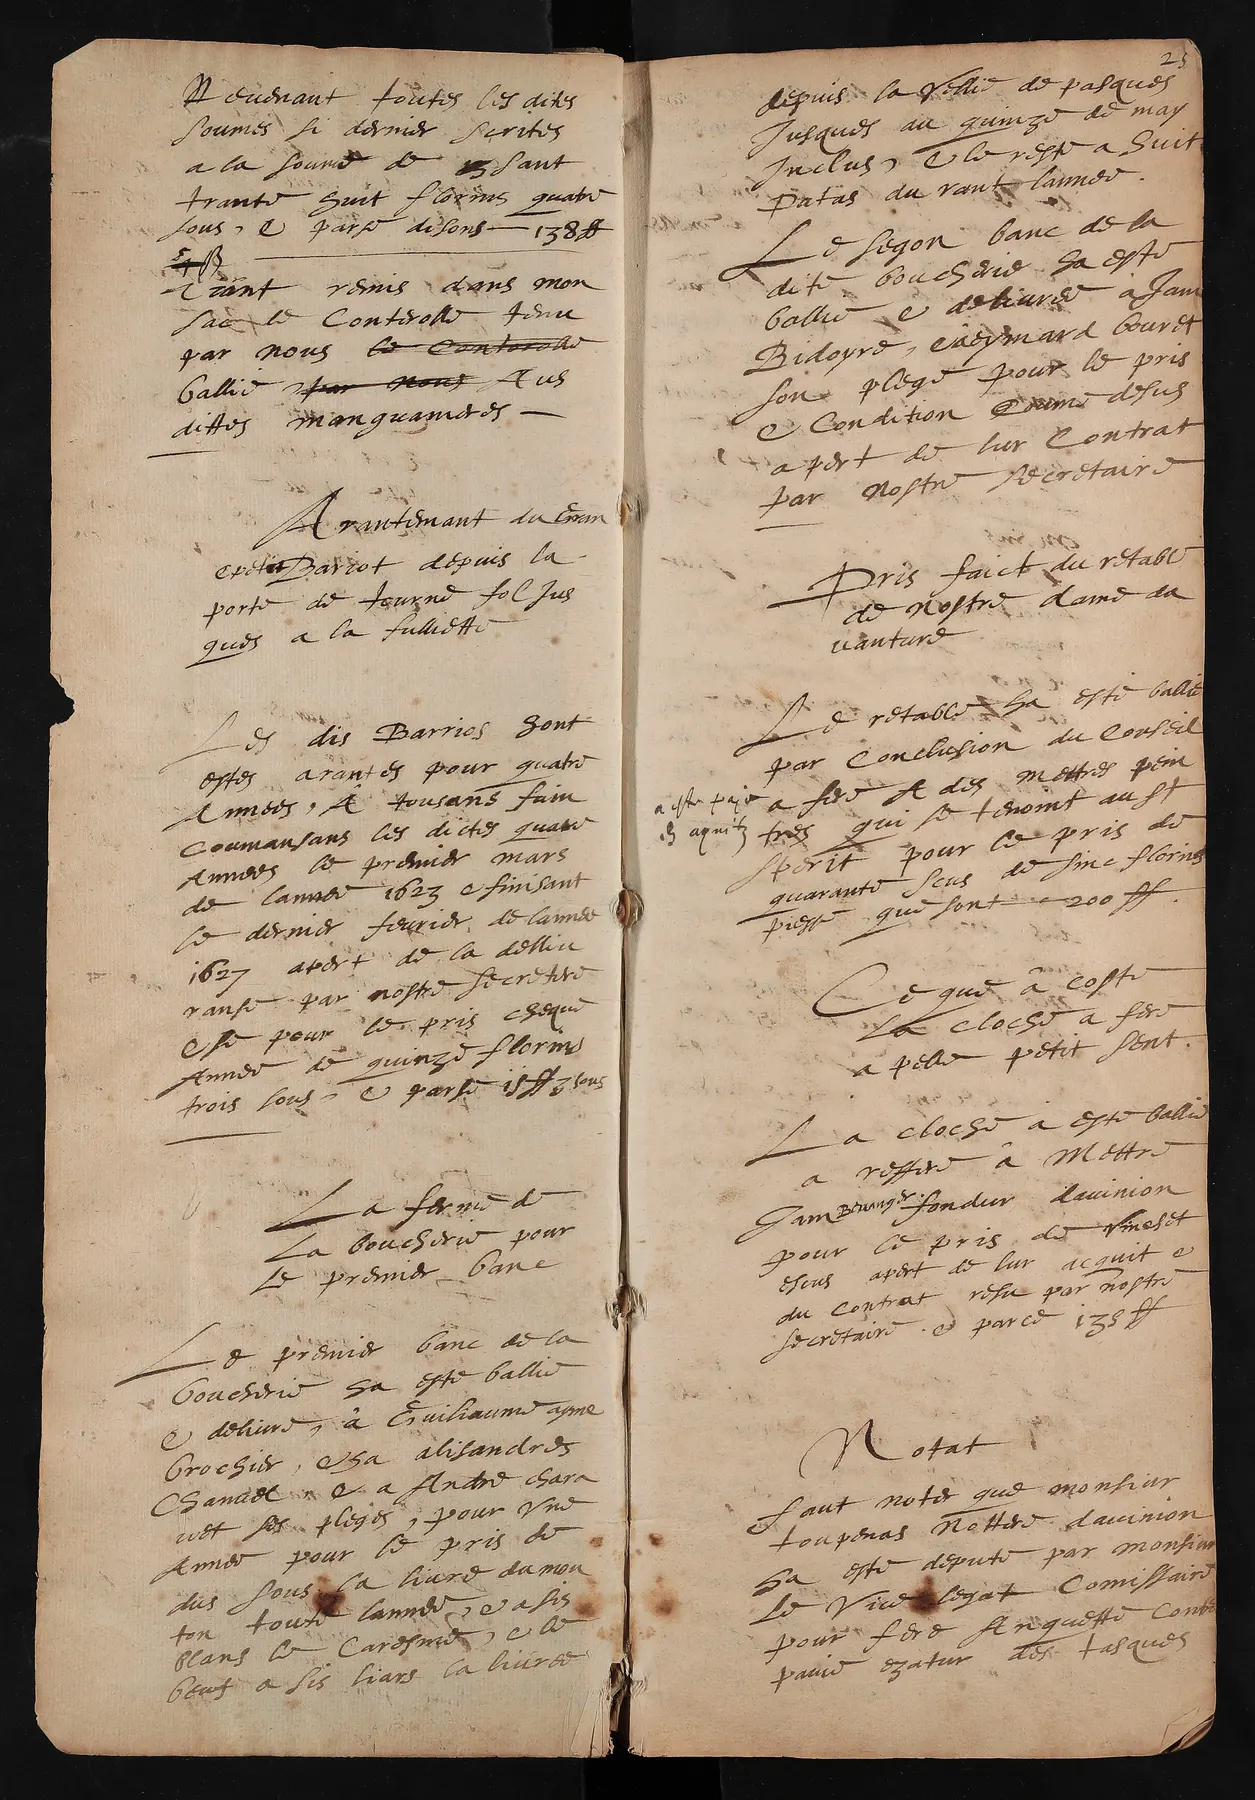 Reuenant toutes les dites
soumes si dernier scrites
a la soume de sant
trante huit florins quatre
sous, e parse disons — 138 ff
4 ß
Aiant remis dans mon
sac le Conterolle tenu
par nous le Conterolle
ballie par nous Aus
dittes manquameres —
Arantemant du Gran
e petit Bariot depuis la
porte de tourne fol Jus
ques a la fulliette
Les dis Barrios sont
estes arantes pour quatre
Annees, A tousans fain
Coumansans les dictes quatre
Annees le premier mars
de lannee 1623 e finisant
le dernier feurier de lannee
1627 apert de la delliu
ranse par nostre secretere
e se pour le pris cheque
Annee de quinze florins
trois sous, e parse 15 ff 3 sous
La ferme de
La boucherie pour
le premier banc
Le premier banc de la
boucherie ha este ballie
e deliure, a Guiliaume ayme
brochier, e ha alisandres
Chauuet, e a Andre chara
uet ses pleges, pour Vne
Annee pour le pris de
dus sous la liure du mou
ton toute lannee, e a sis
blans le Caresme, e le
beuf a sis liars la liuree
25
depuis la Vellie de pasques
Jusques au quinze de may
Inclus, e le reste a huit
Patas du rant lannee.
Le segon banc de la
dite boucherie ha este
ballie e deliuree a Jam
Bidoyre, e a eymard bouret
son plege pour le pris
e Condition Coume desus
apert de lur Contrat
par nostre secretaire
Pris faict du retable
de Nostre dame da
uanture
Le retable ha este ballie
par Conclusion du Conseil
a fere A des mettres pein
tres qui se tenoint au st
sperit pour le pris de
quarante scus de sinc florins
piesse que sont — 200 ff.
a este paje
Ce que a coste
La cloche a fere
apelle petit sent.
La cloche a este ballie
a reffere a Mettre
Jam Beranger fondur dauinion
pour le pris de Vinset
escus apert de lur acquit e
du contrat resu par nostre
secretaire e parce 135 ff
Notat
faut noter que monsiur
toupenas Nottere dauinion
ha este depute par monsiur
le Vice legat Comissaire
pour fere Anqueste contre
pauie ezatur des tasques